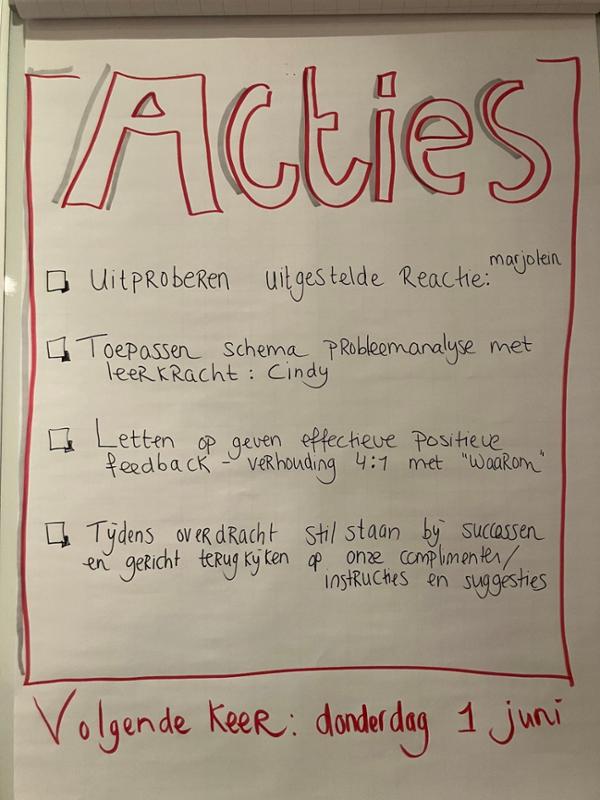 Acties
Uitproberen uitgestelde Reactie: marjolein
Toepassen schema probleemanalyse met
leerkracht : Cindy
Letten op geven effectieve positieve
feedback - verhouding 4:1 met "Waarom"
Tijdens overdracht stil staan bij successen
en gericht terugkijken op onze complimenten/
instructies en suggesties
Volgende keer: donderdag 1 juni